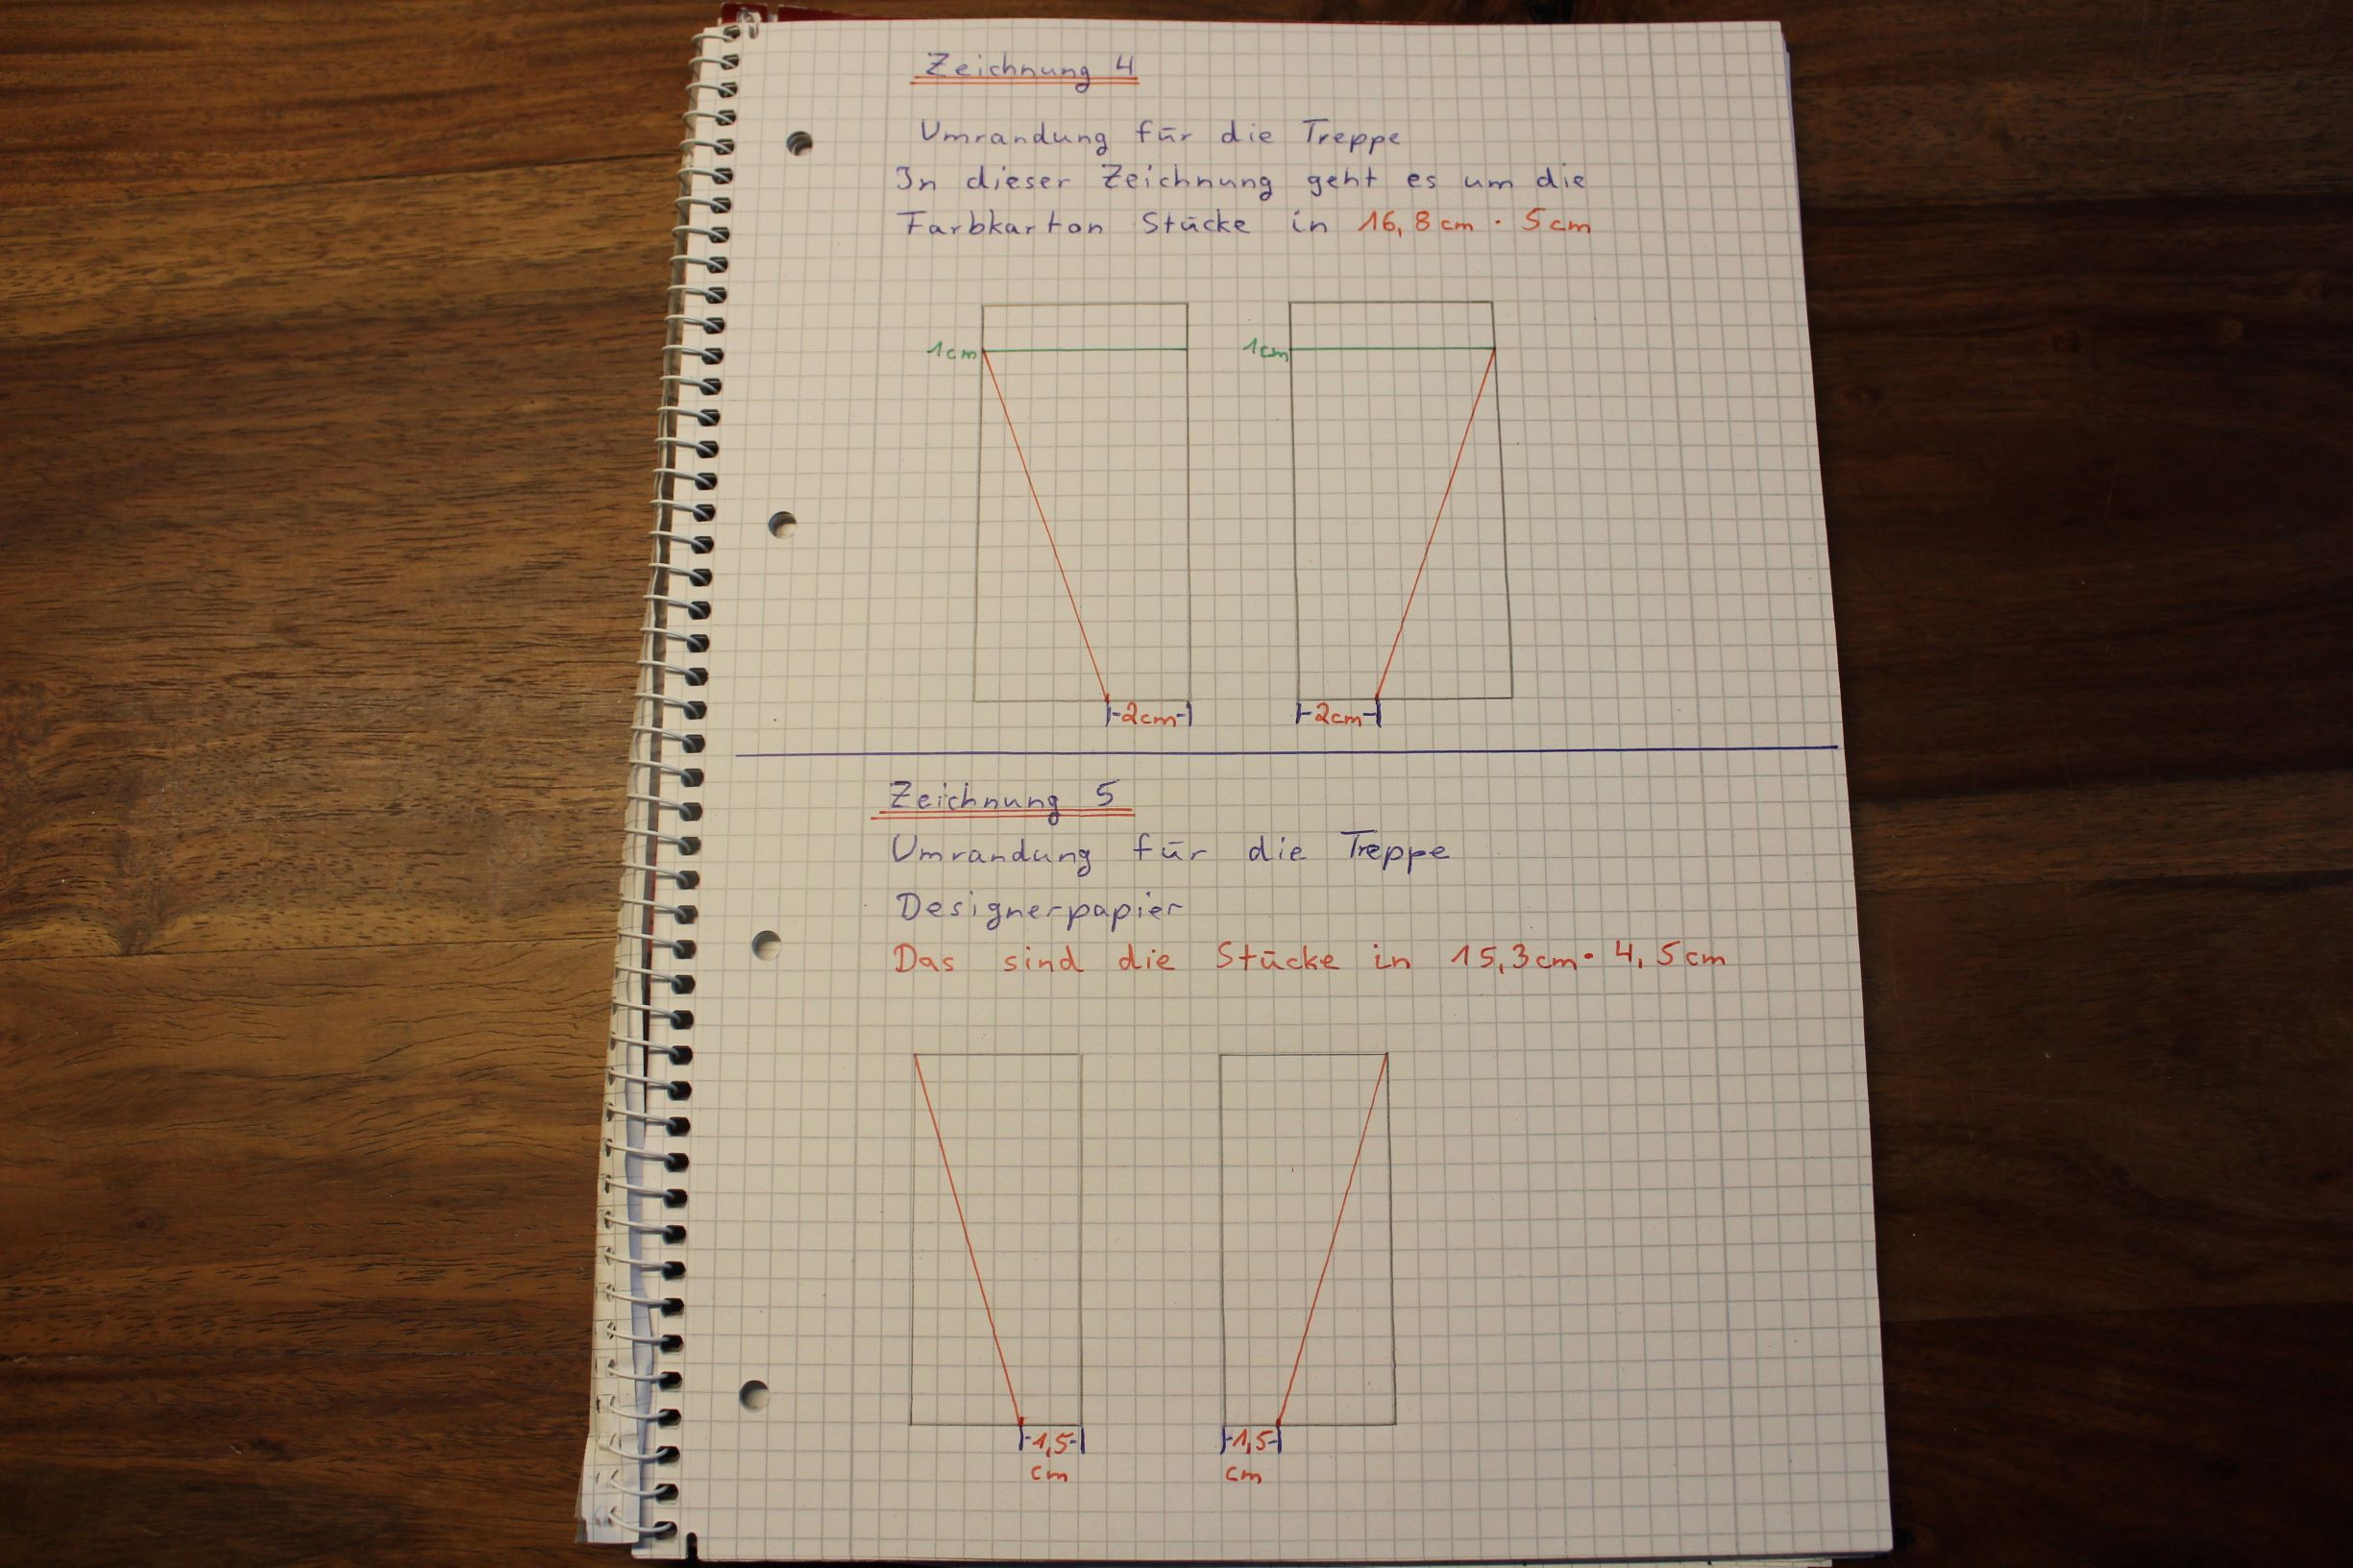 Zeichnung 4
Umrandung für die Treppe
In dieser Zeichnung geht es um die
Farbkarton Stücke in 16,8cm · 5cm
1cm 1cm
2cm 2cm
Zeichnung 5
Umrandung für die Treppe
Designerpapier
Das sind die Stücke in 15,3cm · 4,5cm
1,5 1,5
cm cm